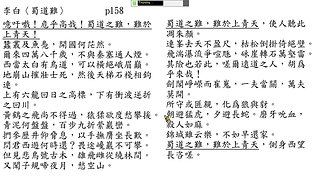 李白《蜀道難》 p158
噫吁嚱！危乎高哉！蜀道之難，難於
上青天！
蠶叢及魚鳧，開國何茫然。
爾來四萬八千歲，不與秦塞通人煙。
西當太白有鳥道，可以橫絕峨眉巔。
地崩山摧壯士死，然後天梯石棧相鉤
連。
上有六龍回日之高標，下有衝波逆折
之回川。
黃鶴之飛尚不得過，猿猱欲度愁攀援。
青泥何盤盤，百步九折縈巖巒。
捫參歷井仰脅息，以手撫膺坐長歎。
問君西遊何時還？畏途巉巖不可攀。
但見悲鳥號古木，雄飛雌從繞林間。
又聞子規啼夜月，愁空山。
蜀道之難，難於上青天，使人聽此
凋朱顏。
連峯去天不盈尺，枯松倒掛倚絕壁。
飛湍瀑流爭喧豗，砯崖轉石萬壑雷。
其險也若此，嗟爾遠道之人，胡為乎
來哉！
劍閣崢嶸而崔嵬，一夫當關，萬夫
莫開。
所守或匪親，化爲狼與豺。
朝避猛虎，夕避長蛇。磨牙吮血，
殺人如麻。
錦城雖云樂，不如早還家。
蜀道之難，難於上青天，側身西望
長咨嗟。